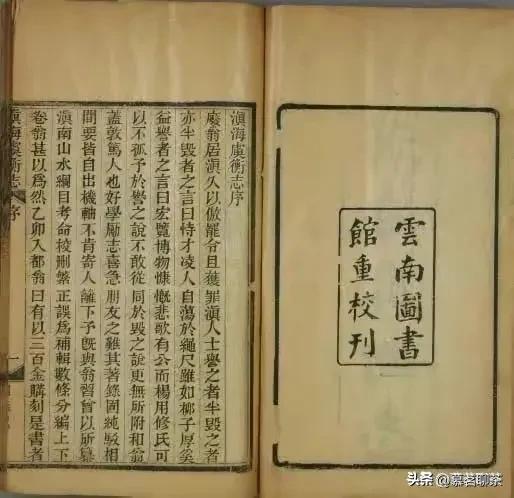 雲南圖書
館重校刊
滇海虞衡志序
廢翁居滇久以傲罷令且獲罪滇人士譽之者半毀之者
亦半毀之者之言曰恃才凌人自蕩於繩尺雖如柳子厚奚
益譽之者之言曰宏覽博物慷慨悲歌有公而楊用修氏可
以不孤予於譽之說不敢從同於毀之說更無所附和翁
蓋敦篤人也好學勵志喜急朋友之難其著錄固純駁相
間要皆自出機軸不肯寄人籬下予旣與翁習曾以所纂
滇南山水綱目考命校刪繁正誤爲補輯數條分編上下
卷翁甚以爲然乙卯入都翁曰有以三百金購刻是書者
滇海虞衡志 序 一
头条 @慕茗聊茶